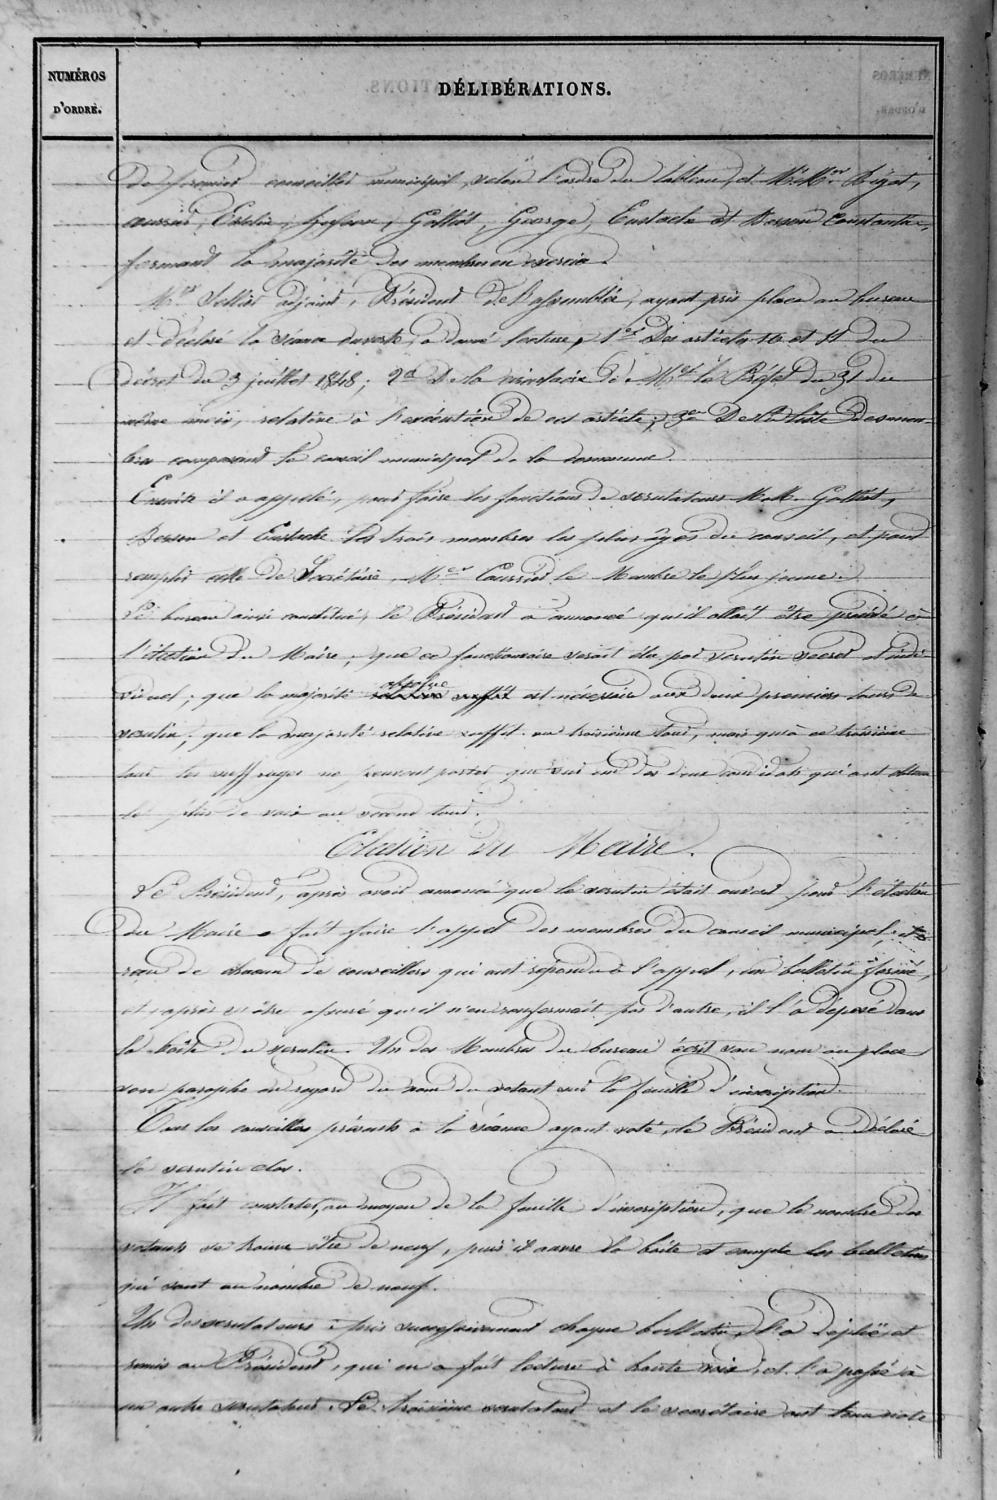 NUMÉROS
D'ORDRE.
DÉLIBÉRATIONS.
de premier conseiller municipal, selon l'ordre du tableau, et M.M.rs Bizot,
Galliot, George, Eustache et Besson Constantin,
formant la majorité des membres en exercice.
M.er Sellier adjoint, Président de l'assemblée, ayant pris place au bureau
et déclaré la séance ouverte, a donné lecture, 1.er Des articles 10 et 11 du
décret du 3 juillet 1848; 2.d De la circulaire de M.er le Préfet du 31 du
même mois, relative à l'exécution de ces articles; 3.em De la liste des mem-
bres composant le conseil municipal de la commune.
Ensuite il a appelé, pour faire les fonctions de scrutateurs M.M. Galliot,
Besson et Eustache les trois membres les plus âgés du conseil, et pour
remplir celle de Secrétaire, M.er Caussin le Membre le plus jeune.
Le bureau ainsi constitué, le Président a annoncé qu'il allait être procédé à
l'élection du Maire; que ce fonctionnaire serait élu par scrutin secret et indi-
viduel; que la majorité absolue est nécessaire aux deux premiers tours de
scrutin; que la majorité relative suffit au troisième tour, mais qu'à ce troisième
tour les suffrages ne peuvent porter que sur un des deux candidats qui ont obtenu
le plus de voix au second tour.
Election du Maire.
Le Président, après avoir annoncé que le scrutin était ouvert pour l'élection
du Maire a fait faire l'appel des membres du conseil municipal, et a
reçu de chacun de conseillers qui ont répondu à l'appel, un bulletin fermé,
et après s'être assuré qu'il n'en renfermait pas d'autre, il l'a déposé dans
la boîte du scrutin. Un des Membres du bureau écrit son nom ou place
son paraphe en regard du nom du votant sur la feuille d'inscription.
Tous les conseillers présents à la séance ayant voté, le Président a déclaré
le scrutin clos.
Il fait constater, au moyen de la feuille d'inscription, que le nombre des
votants se trouve être de neuf, puis il ouvre la boîte et compte les bulletins
qui sont au nombre de neuf.
Un des scrutateurs a pris successivement chaque bulletin, l'a déplié, et
remis au Président, qui en a fait lecture à haute voix, et l'a passé à
un autre scrutateur. Le troisième scrutateur et le secrétaire ont tenu note